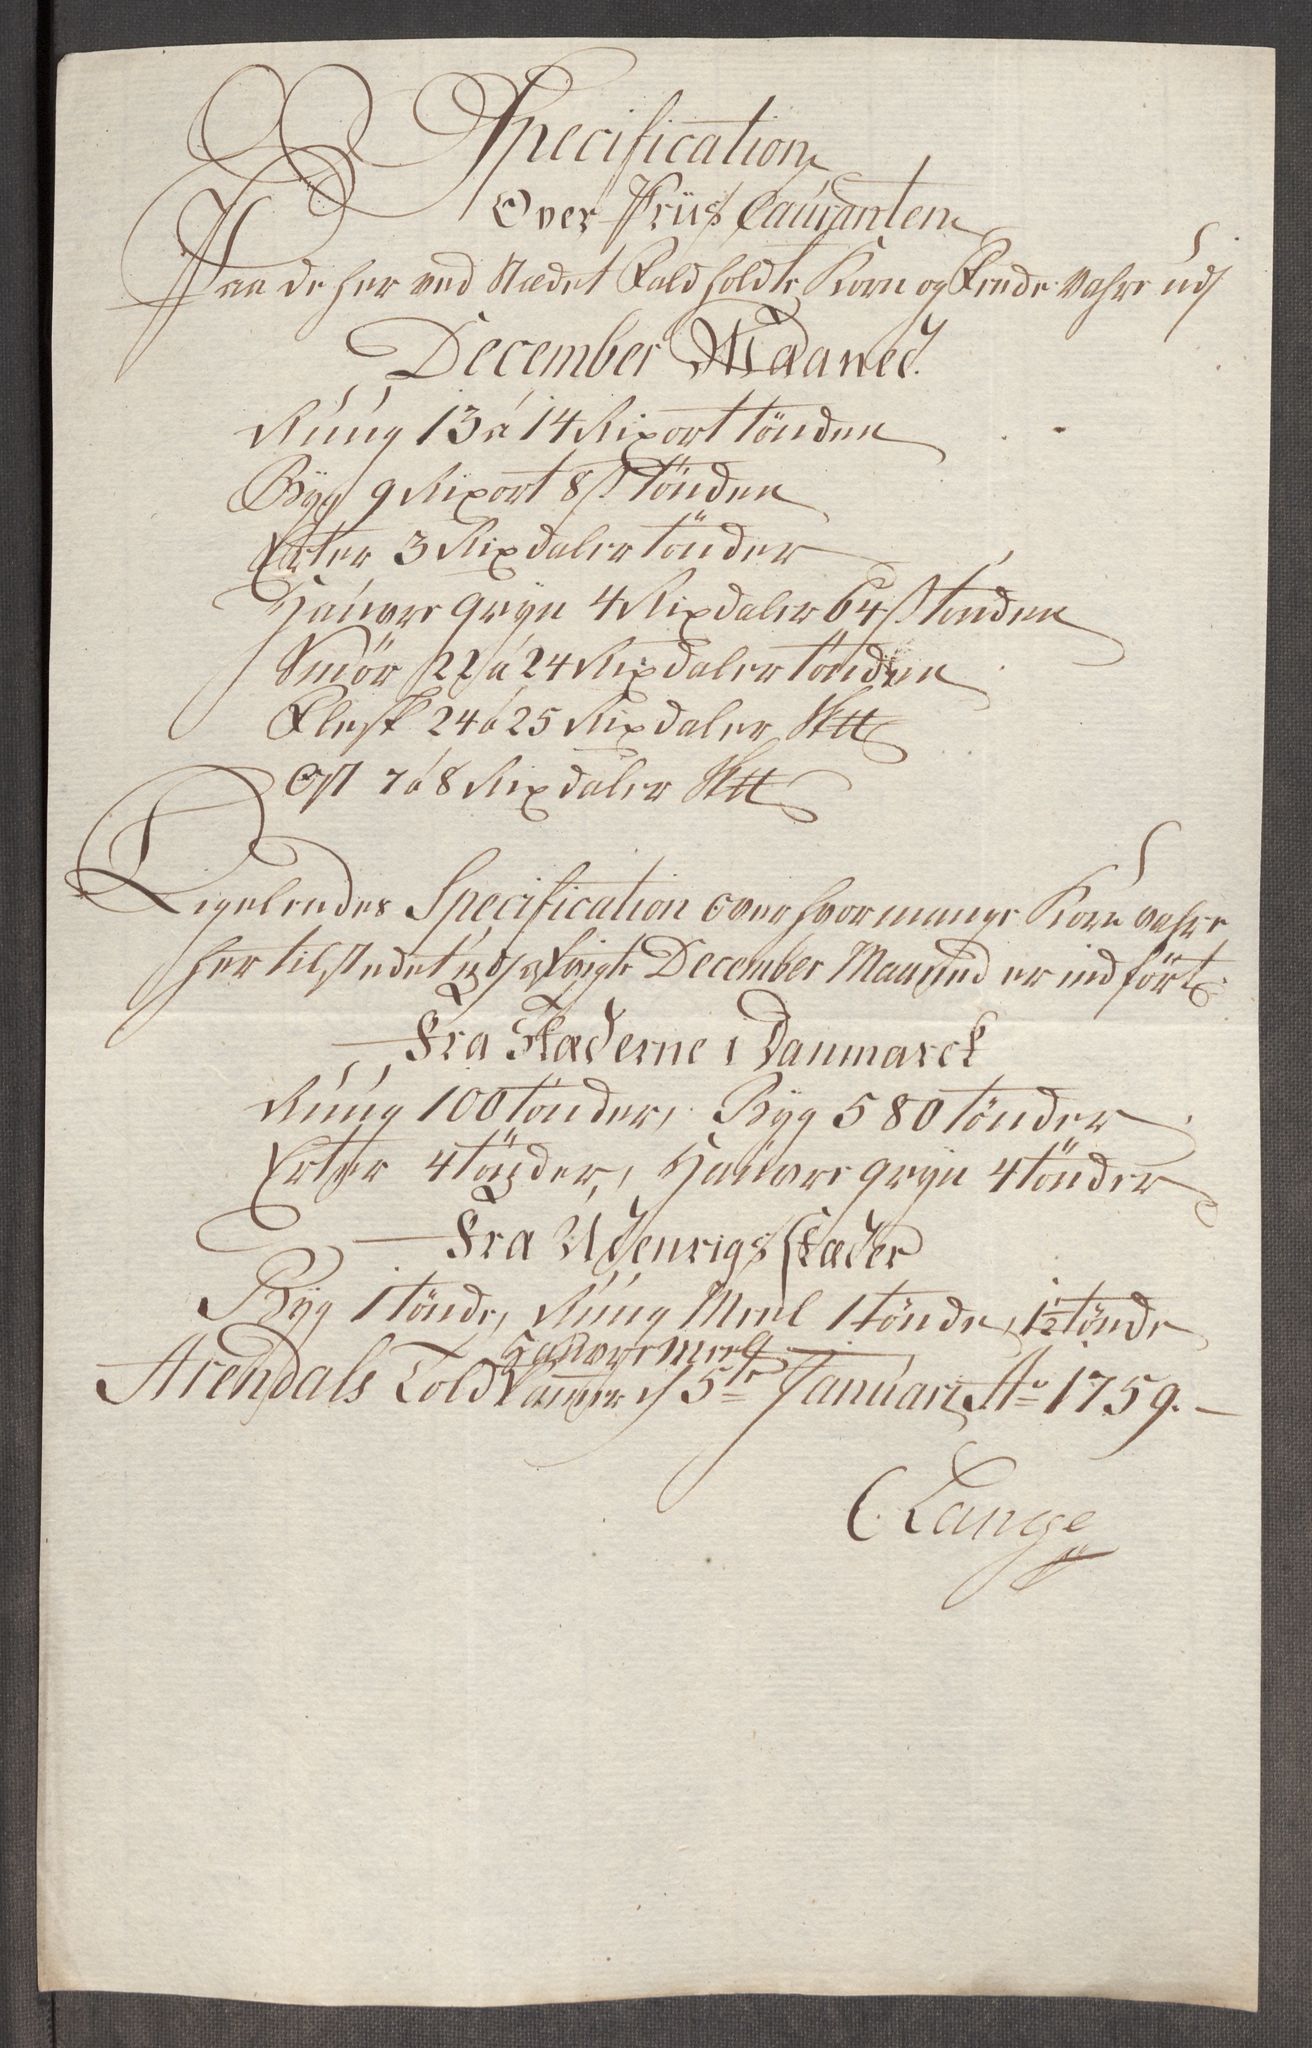 Specification
Over Priis Couranten
Paa de her ved Stædet Fald holdte Korn og Fende Vahre udj
December Maaned.
Rúúg 13 á 14 Rixort tönden
Byg 9 Rixort 8 ß tönden
Erter 3 Rixdaler tönder
Haúvre gryn 4 Rixdaler 64 ß tönden
Smör 22 á 24 Rixdaler tönden
Flesk 24 á 25 Rixdaler
Ost 7 á 8 Rixdaler
Ligeleedes Specification over hvor mange Korn vahre
her til stedet udj December Maaned er indfört
Fra Stæderne i Danmarck
Rúúg 100 tönder, Byg 580 tönder
Erter 4 tönder, Haúvre gryn 4 tönder
Fra Udenrigs stæder
Byg 1 tönde, Rúúg Meel 1 tönde, 1½ tönde
Hauvre meel
Arendals Told Camer d 5te Januari Ao 1759.
C. Lange